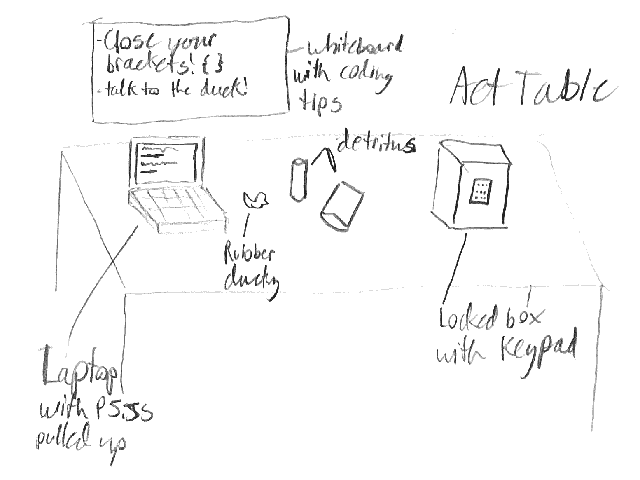 -Close your
brackets! {}
-talk to the duck!
whiteboard
with coding
tips
Act Table
detritus
Rubber
ducky
Locked box
with Keypad
Laptop
with P5.JS
pulled up